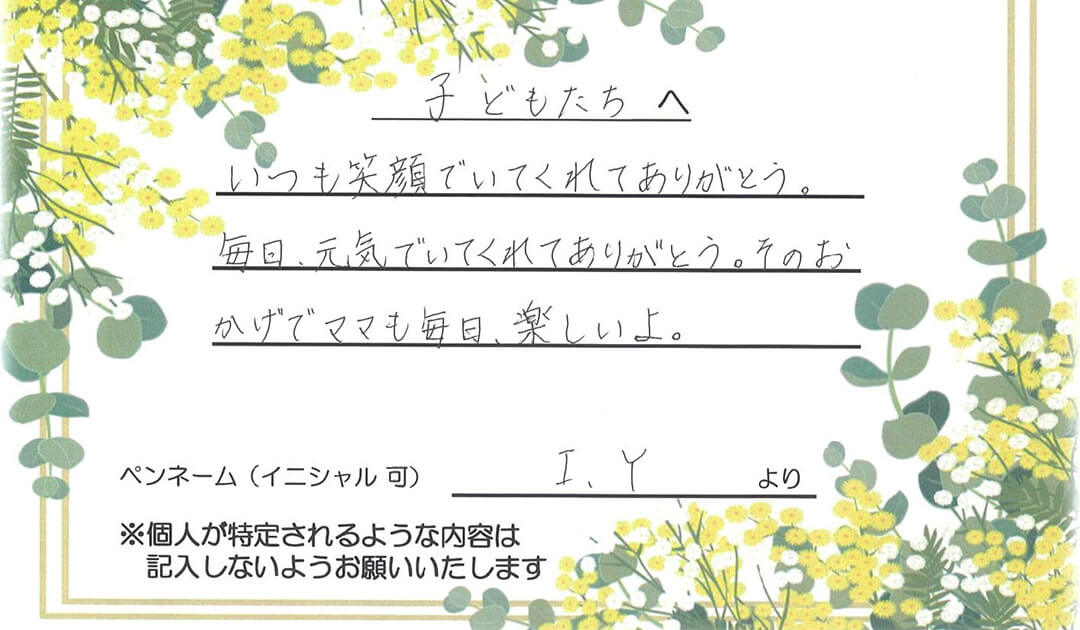 子どもたち へ
いつも笑顔でいてくれてありがとう。
毎日、元気でいてくれてありがとう。そのお
かげでママも毎日、楽しいよ。
ペンネーム（イニシャル 可） I、Y より
※個人が特定されるような内容は
記入しないようお願いいたします